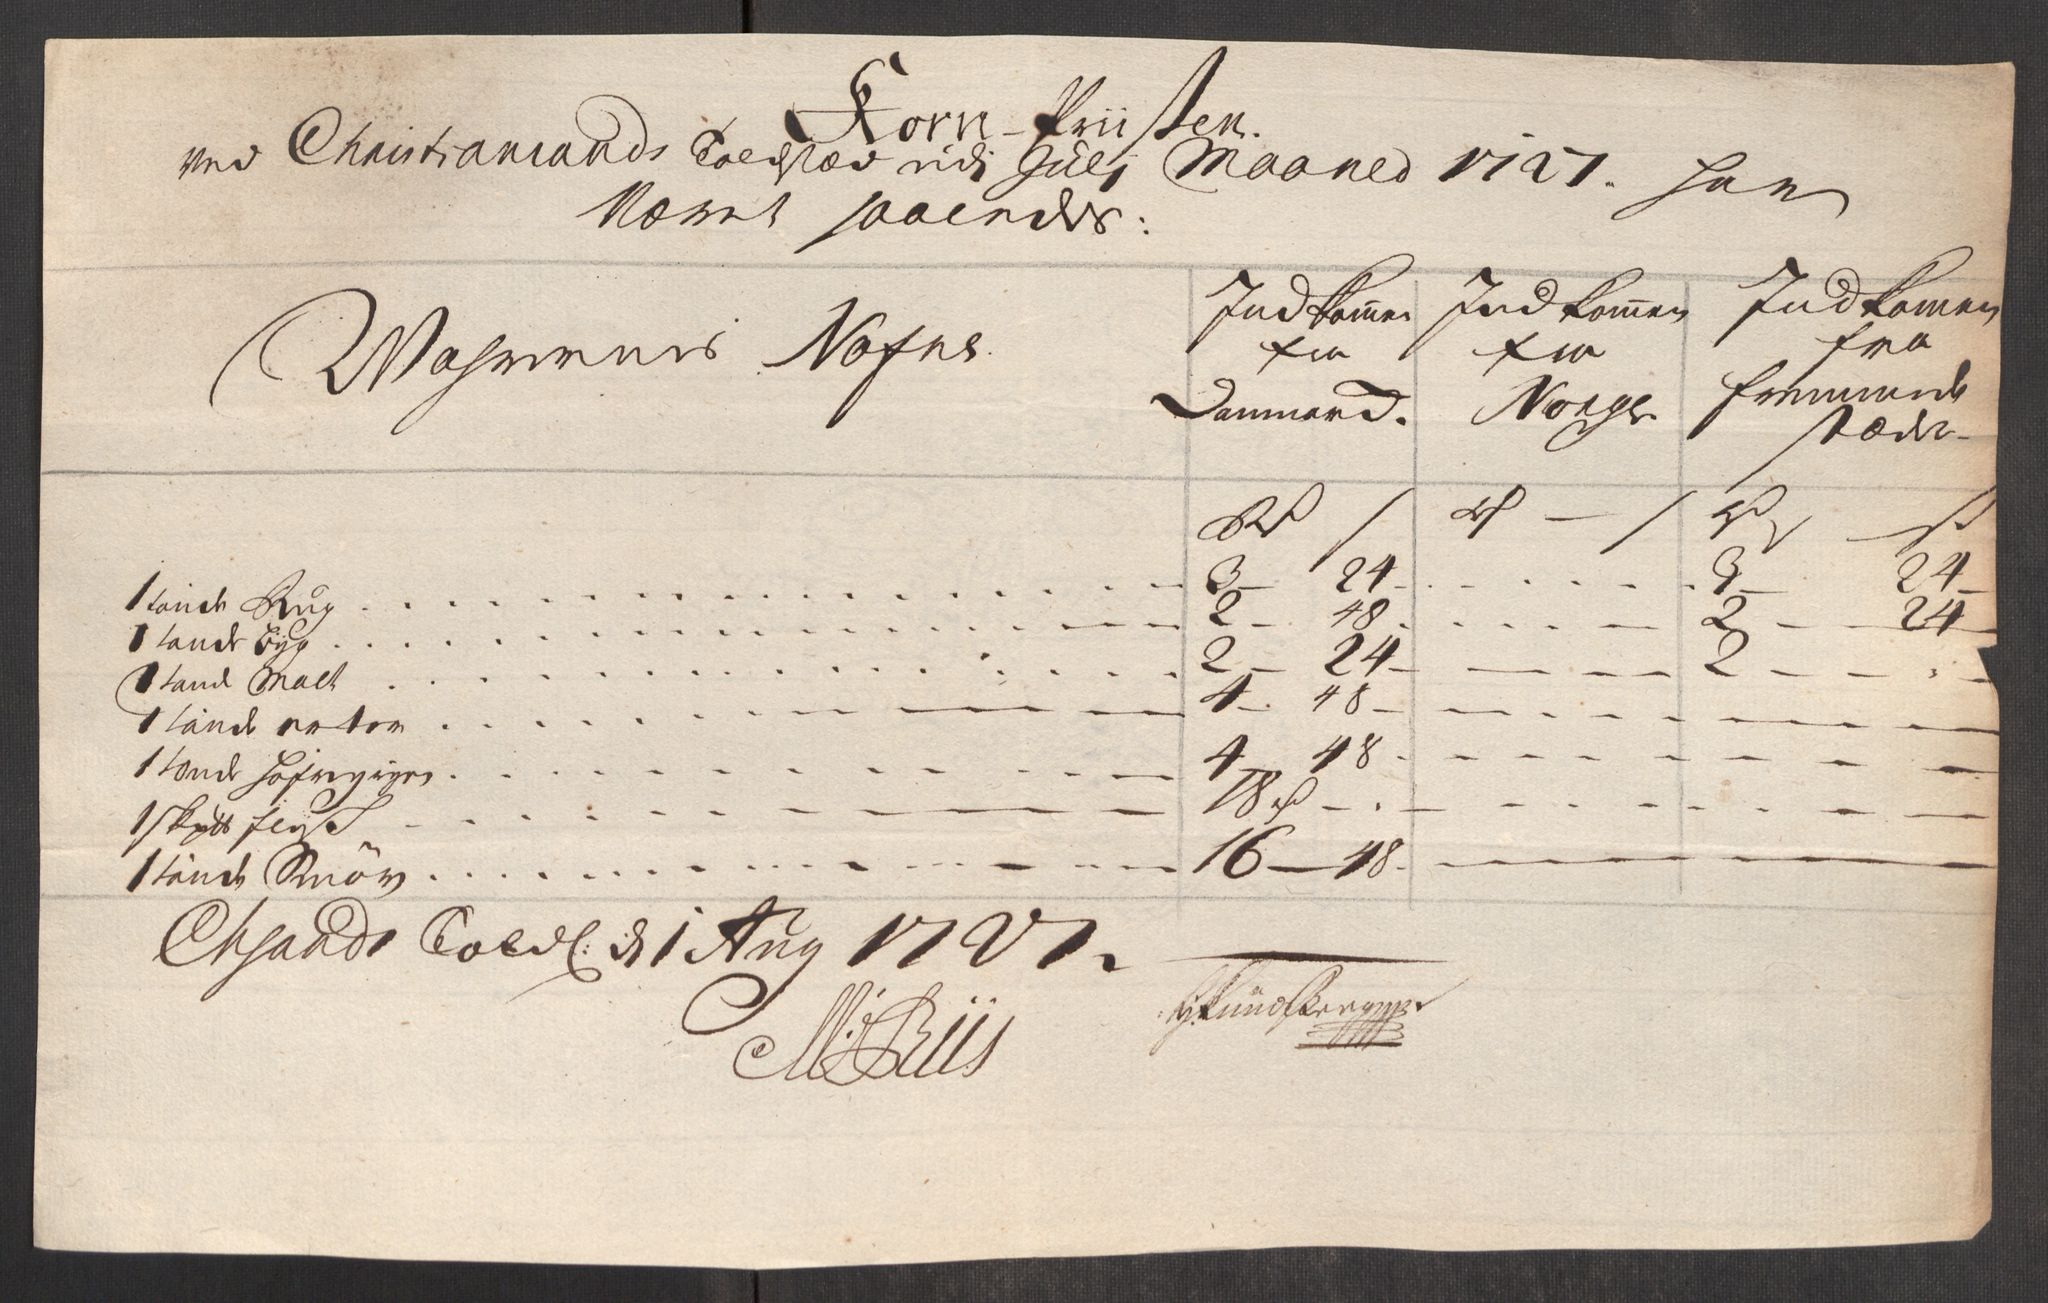 Korn-Priisen.
Ved Christiansands Toldsted udi Julj Maaned 1727. har
Været saaledes:
Wahrernes Nafne
Indkommen fra Danmarck.
Indkommen fra Norge
Indkommen fra fremmede stæder
Rd ß Rd ß Rd ß
1 tønde Rug 3 24 3 24
1 tønde Byg 2 48 2 24
1 tønde Malt 2 24 2
1 tønde erter 4 48
1 tønde hafregryn 4 48
1 skpd flesk 18 rd
1 tønde Smör 16 48
Chsands Told: d 1 Aug 1727.
M: Riis